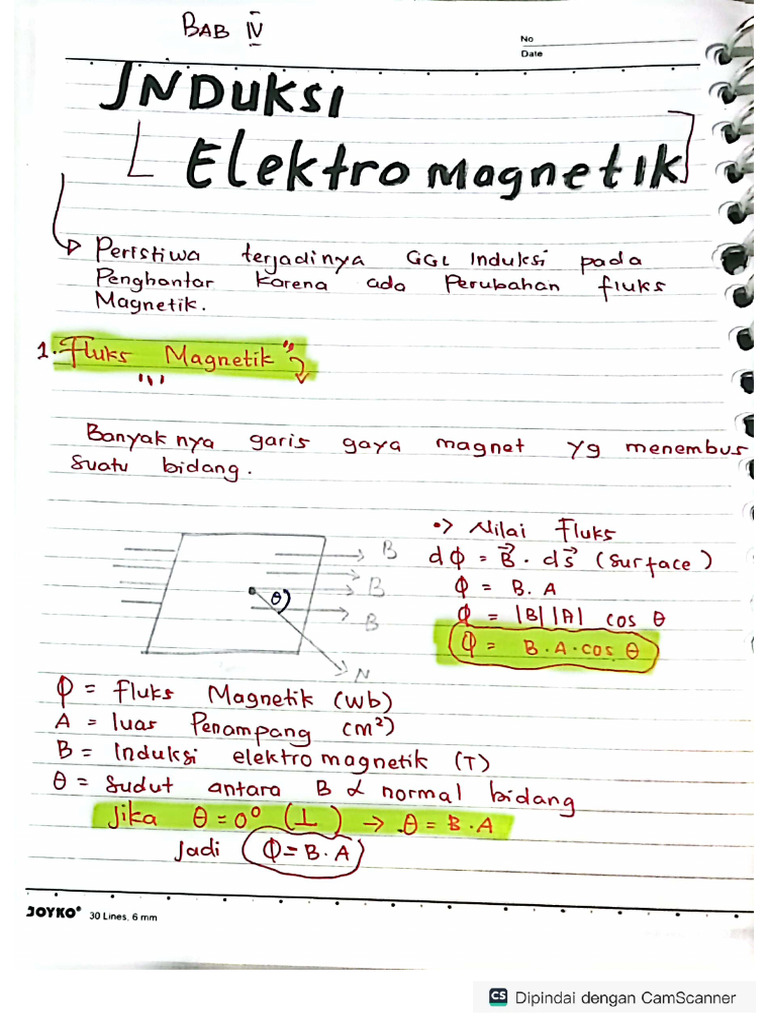 BAB IV
No
Date
INDUKSI
Elektro magnetik
Peristiwa terjadinya GGL Induksi pada
Penghantar karena ada Perubahan fluks
Magnetik.
1. Fluks Magnetik"
Banyak nya garis gaya magnet yg menembus
suatu bidang.
•> Nilai Fluks
dϕ = B⃗ . ds⃗ (surface)
ϕ = B. A
ϕ = |B| |A| cos θ
ϕ = B. A. cos θ
B
B
B
θ
N
ϕ = fluks Magnetik (wb)
A = luas Penampang (m²)
B = Induksi elektro magnetik (T)
θ = sudut antara B & normal bidang
Jika θ = 0° (⊥) → θ = B. A
Jadi ϕ = B. A
JOYKO® 30 Lines, 6 mm
CS Dipindai dengan CamScanner